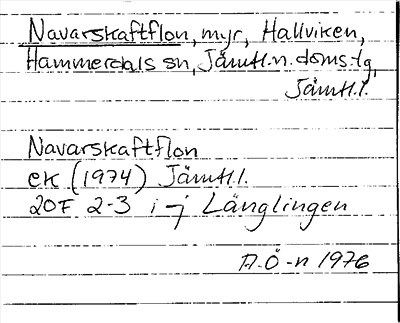 Navarskaftflon, myr, Hallviken,
Hammerdals sn, Jämtl.n. doms-tg,
Jämtl.l.
Navarskaftflon
ek (1974) Jämtl.l.
20F 2-3 i-j Länglingen
A.Ö-n 1976